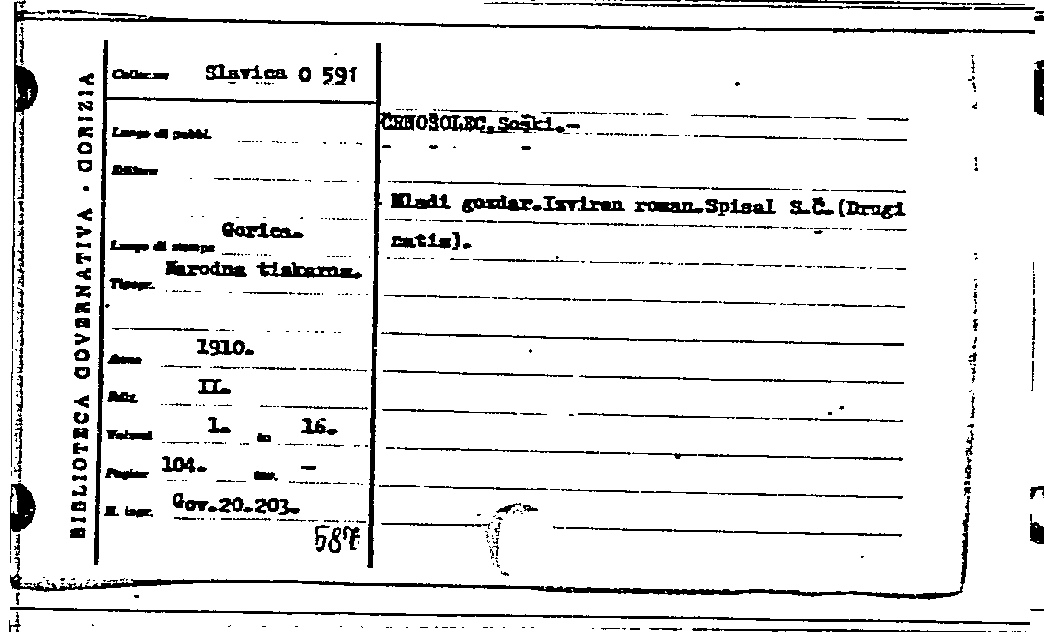 BIBLIOTECA GOVERNATIVA · GORIZIA
Collocaz. Slavica O 591
Luogo di pubbl.
Editore
Luogo di stampa Gorica.
Tipogr. Narodna tiskarna.
Anno 1910.
Ediz. II.
Volumi 1. in 16.
Pagine 104. tav. —
N. ingr. Gov.20.203.
ČRNOŠOLEC,Soški.-
Mladi gozdar.Izviren roman.Spisal S.Č.(Drugi
natis).